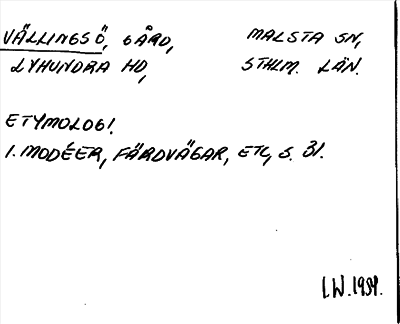 VÄLLINGSÖ, GÅRD, MALSTA SN,
LYHUNDRA HD, STHLM. LÄN.
ETYMOLOGI.
I. MODÉER, FÄRDVÄGAR, ETC, S. 31.
I.W. 1984.